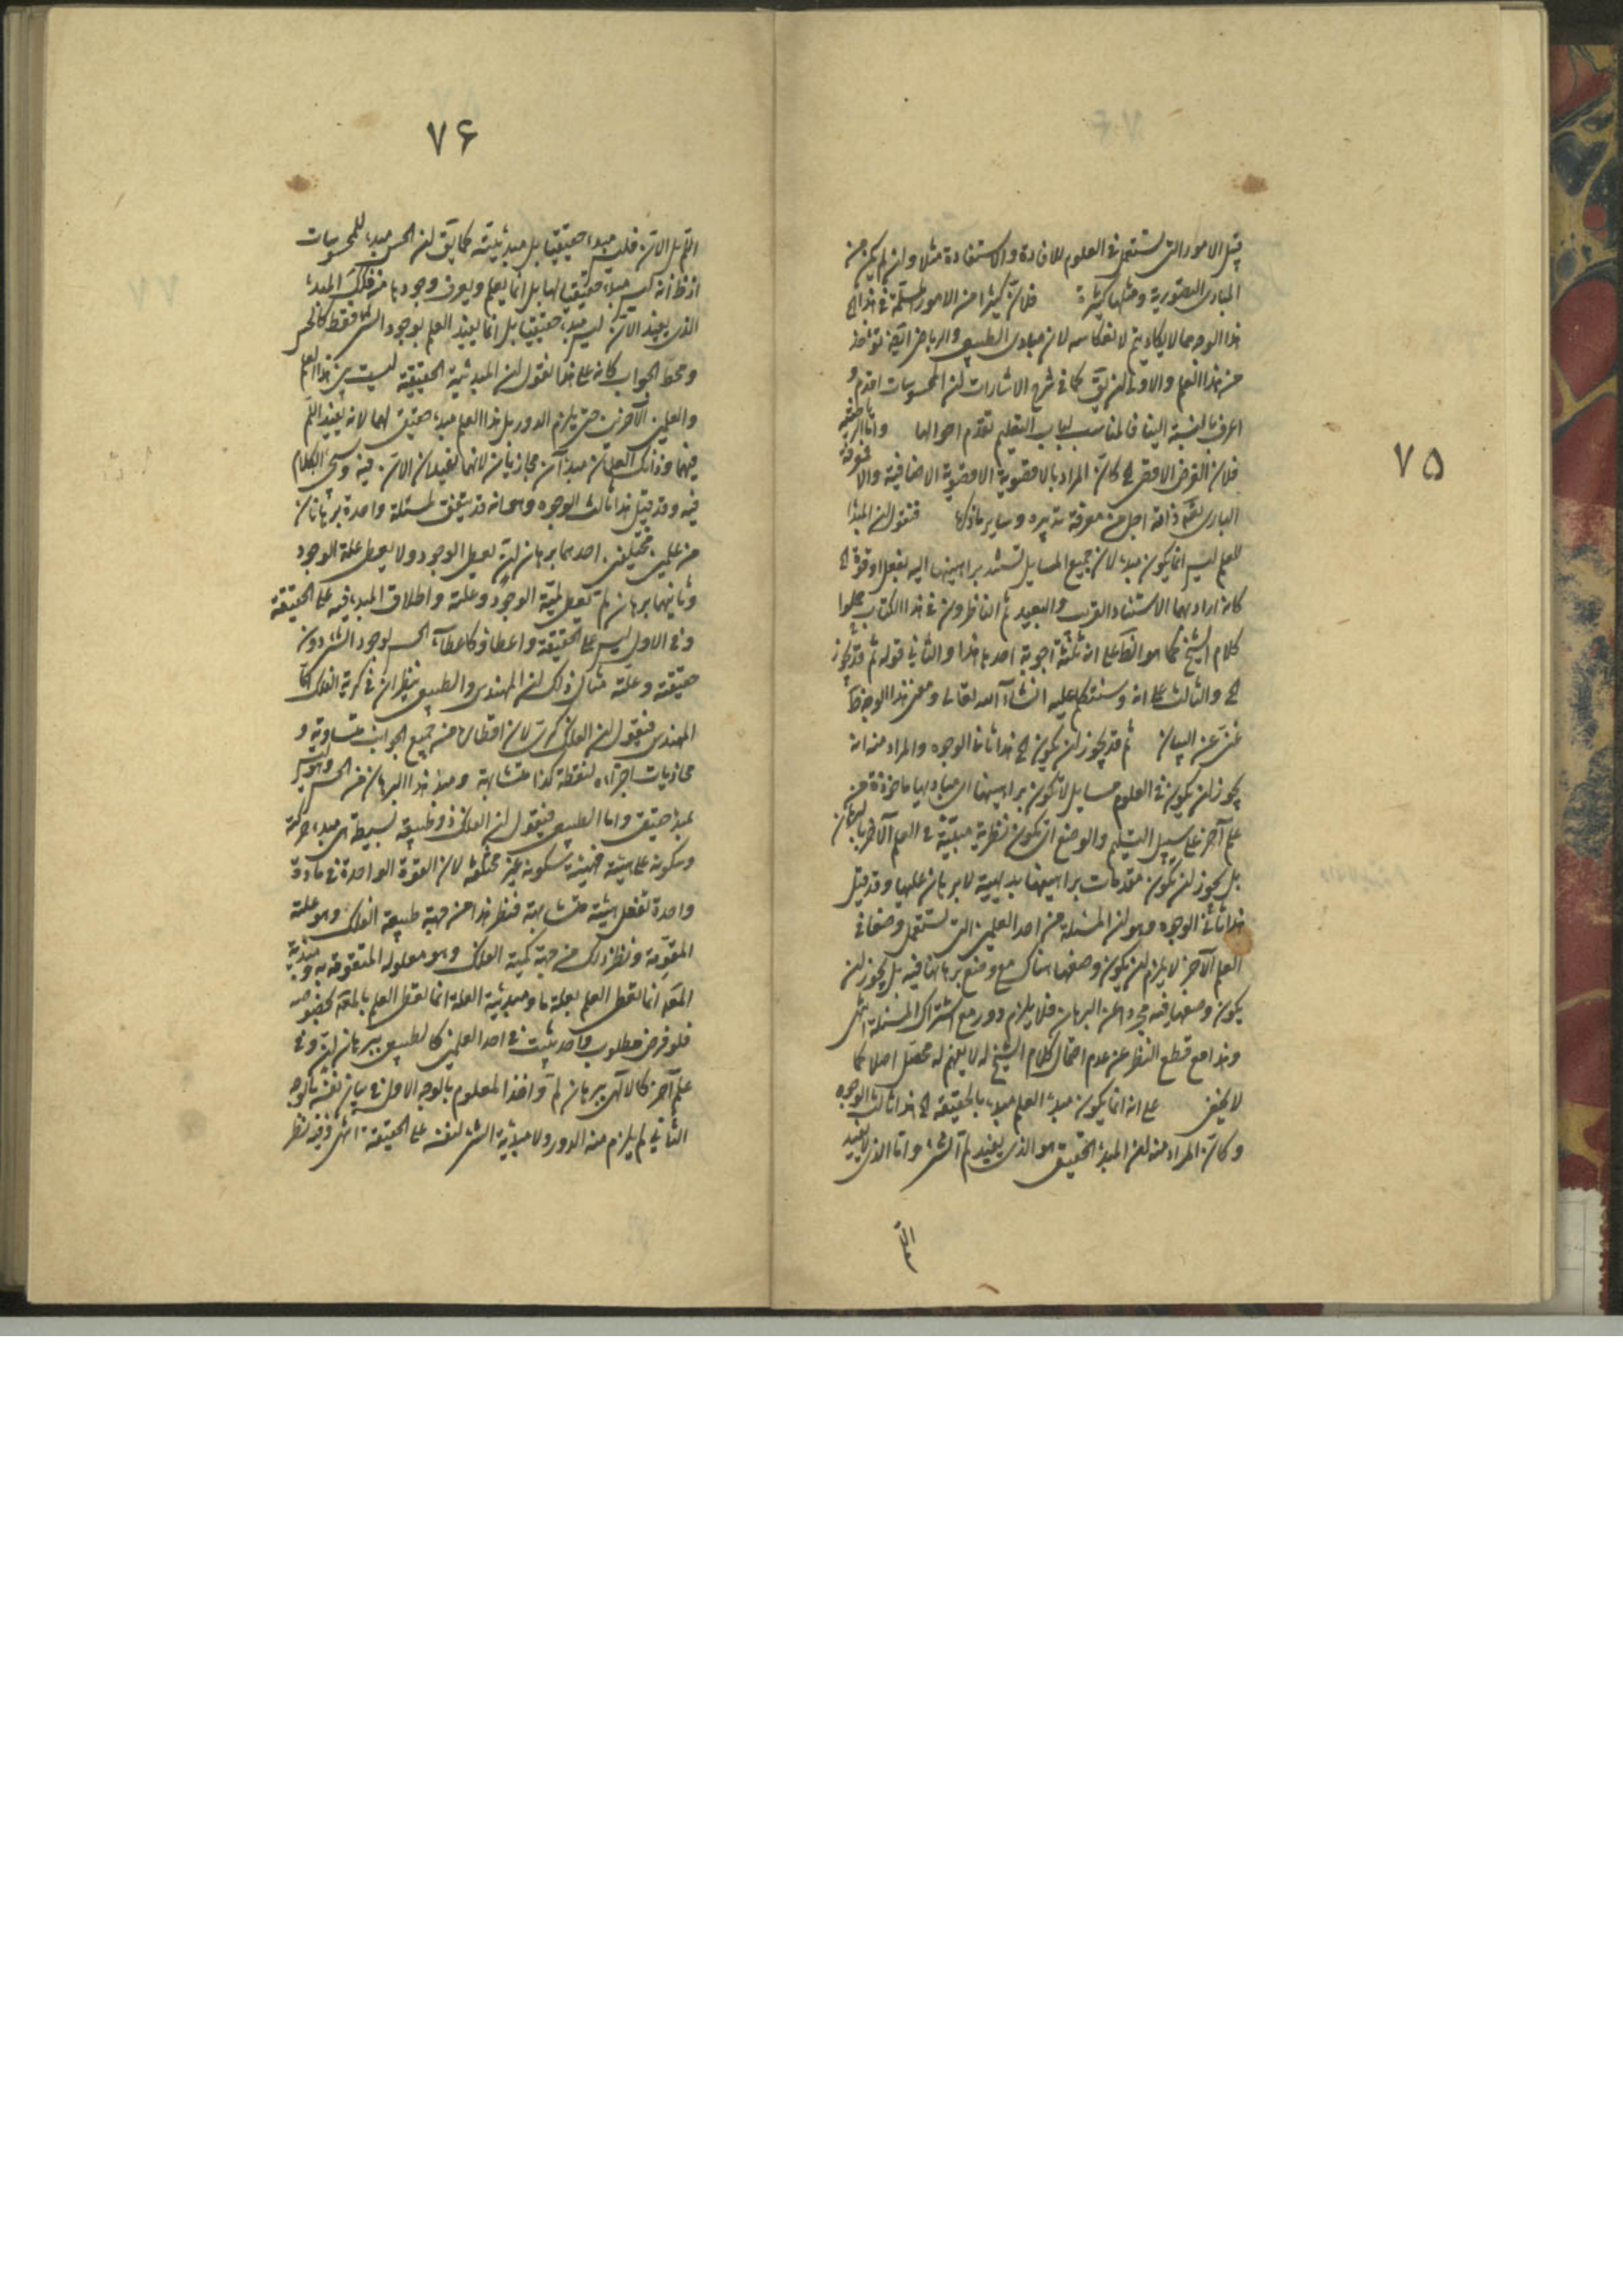 ۷۵
قبل الامور التی تستعمل فی العلوم للافادة والاستفادة مثلا وان لم یکن من
المبادی التصوریة ومثلها کثیرة فلان کثیرا من الامور المسلمة فی هذا الخ
هذا الوجه مما لا یکاد یتم لانعکاسه لان مبادی الطبیعی والریاضی ایضا تؤخذ
من هذا العلم والاولی ان یق کما فی شرح الاشارات ان المحسوسات اقدم و
اعرف بالنسبة الینا فالمناسب لباب التعلیم تقدم احوالها واما الحقیقیة
فلان الغرض الاقصی الخ کان المراد بالاقصویة الاقصویة الاضافیة والا فمعرفة
الباری تعه ذاته اجل من معرفة تدبیره وسایر ما ذکرها فنقول ان المبدا
للعلم لیس انما یکون مبدء لان جمیع المسایل تستند براهینها الیه بفعل او قوة الخ
کانه اراد بهما الاستناد القریب والبعید ثم الناظرون فی هذا الکتاب حملوا
کلام الشیخ کما هو الظ علی انه ثلثة اجوبة احدها هذا والثانی قوله ثم قد یجوز
الخ والثالث علی انه وسنتکلم علیه انشاء الله تعالی ومعنی هذا الوجه ظ
غنی عن البیان ثم قد یجوز ان یکون الخ هذا ثانی الوجوه والمراد منه انه
یجوز ان یکون فی العلوم مسایل لا یکون براهینها ای مبادیها ماخوذة من
علم آخر علی سبیل التسلیم والوضع ای یکون نظریة مبینة فی العلم الآخر بالبرهان
بل یجوز ان یکون مقدمات براهینها بدیهیة لا برهان علیها وقد قیل
هذا ثانی الوجوه وهو ان المسئلة من احد العلمین التی تستعمل وضعا فی
العلم الآخر لا یلزم ان یکون وضعها هناک مع وضع برهانها فیه بل یجوز ان
یکون وضعها فیه مجردا عن البرهان فلا یلزم دور مع اشتراک المسئلة انتهی
وهذا مع قطع النظر عن عدم احتمال کلام الشیخ له لا یفهم له محصل اصلا کما
لا یخفی علی انه انما یکون مبدء العلم مبدء بالحقیقة الخ هذا ثالث الوجوه
وکان المراد منه ان المبدء الحقیقی هو الذی یفید لم الشئ واما الذی لا یفید
۷۶
اللم بل الان فلیس مبدء حقیقیا بل مبدئیته کما یق ان الحس مبدء للمحسوسات
اذ ظ انه لیس مبدء حقیقیا لها بل انما یعلم ویعرف وجودها من ذلک المبدء
الذی یفید الان لیس مبدء حقیقیا بل انما یفید العلم بوجود الشئ فقط کالحس
ومحط الجواب کانه علی هذا نقول ان المبدئیة الحقیقیة لیست بین هذا العلم
والعلمین الآخرین حتی یلزم الدور بل هذا العلم مبدء حقیقی لهما لانه یفید اللم
فیهما وذانک العلمان مبدءآن مجازیان لانهما یفیدان الان فیه وسیجئ الکلام
فیه وقد قیل هذا ثالث الوجوه وهو انه قد یتفق لمسئلة واحدة برهانان
من علمین مختلفین احدهما برهان ان یعطی الوجود ولا یعطی علة الوجود
وثانیهما برهان لم یعطی لمیة الوجود وعلته واطلاق المبدء فیه علی الحقیقة
وفی الاول لیس علی الحقیقة واعطاؤه کاعطاء الحس لوجود الشئ دون
حقیقته وعلته مثال ذلک ان المهندس والطبیعی ینظران فی کریة الفلک اما
المهندس فیقول ان الفلک کری لان اقطاره من جمیع الجوانب متساویة و
محاذیات اجزاءه لنقطة کذا متشابهة ومبدء هذا البرهان من الحس وهو لیس
بمبدء حقیقی واما الطبیعی فیقول ان الفلک ذو طبیعة بسیطة هی مبدء حرکته
وسکونه علی هیئة فهیئة سکونه غیر مختلفة لان القوة الواحدة فی مادة
واحدة تفعل هیئة متشابهة فنظر هذا من جهة طبیعة الفلک وهو علته
المقومة ونظر ذلک من جهة کمیة الفلک وهو معلوله المتقومة به ومبدئیة
المعه انما یعطی العلم بعلة ما ومبدئیة العلة انما یعطی العلم بالمعه بخصوصه
فلو فرض مطلوب واحد یثبت فی احد العلمین کالطبیعی ببرهان ان وفی
علم آخر کالالهی ببرهان لم واخذ المعلوم بالوجه الاول فی بیان نفسه بالوجه
الثانی لم یلزم منه الدور ولا مبدئیة الشئ لنفسه علی الحقیقة انتهی وفیه نظر